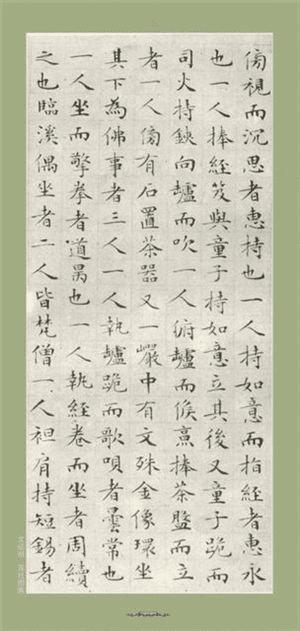 傍視而沉思者惠持也一人持如意而指經者惠永
也一人捧經笈與童子持如意立其後又童子跪而
司火持鋏向罏而吹一人俯罏而候烹捧茶盤而立
者一人傍有石置茶器又一巖中有文殊金像環坐
其下為佛事者三人一人執罏跪而歌唄者曇常也
一人坐而擎拳者道昺也一人執經卷而坐者周續
之也臨溪偶坐者二人皆梵僧一人袒肩持短錫者